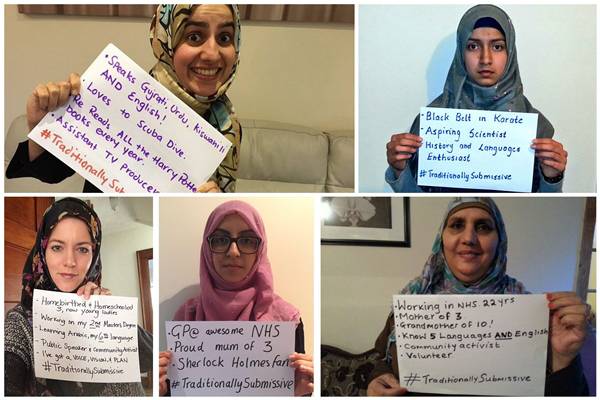 • Speaks Gujrati, Urdu, Kiswahili
AND English!
• Loves to Scuba Dive.
• Re Reads ALL the Harry Potter
books every year.
• Assistant TV Producer
#Traditionally Sub
• Black Belt in Karate
• Aspiring Scientist
• History and Languages
Enthusiast
#TraditionallySubmissive
• Homebirthed & Homeschooled
3, now young ladies
• Working on my 2nd Masters Degree
• Learning Arabic, my 6th language
• Public Speaker & Community Activist
• I've got a VOICE, VISION, & PLAN
#TraditionallySubmissive
• GP@ awesome NHS
• Proud mum of 3
• Sherlock Holmes fan
#TraditionallySubmissive
• Working in NHS 22 yrs
• Mother of 3
• Grandmother of 10!
• Know 5 Languages AND English
• Community activist
• Volunteer
#TraditionallySubmissive